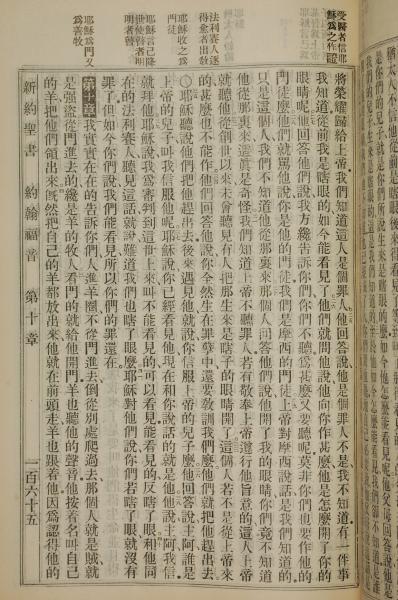 受醫者信耶
穌爲之作證
法利賽人遂
將愈者出敎
耶穌收之爲
門徒
耶穌言己降
世使瞽者明
明者瞽
耶穌爲門又
爲善牧
將榮耀歸給上帝我們知道這人是個罪人他回答說他是個罪人不是我不知道有一件事
我知道從前我是瞎眼的如今能看見了他們就問他說他向你作甚麼他是怎麼開了你的
眼睛呢他回答他們說我方纔告訴你們你們不聽爲甚麼又要聽呢莫非你們也要作他的
門徒麼他們就罵他說你是他的門徒我們是摩西的門徒上帝對摩西說話是我們知道的
只是這個人我們不知道他從那裏來那個人回答他們說他開了我的眼睛你們竟不知道
他從那裏來這眞是奇怪我們知道上帝不聽罪人若有敬奉上帝遵行他旨意的這人上帝
就聽他從創世以來未曾聽見有人把那生來是瞎子的眼睛開了這個人若不是從上帝來
的甚麼也不能作他們回答他說你全然生在罪孽中還要敎訓我們麼他們就把他趕出去
○耶穌聽說他們把他趕出去後來遇見他就說你信服上帝的兒子麼他回答說主阿誰是
上帝的兒子叫我信服他呢耶穌說你已經看見他現在和你說話的就是他他說主阿我信
就拜他耶穌說我爲審判到這世上來叫不能看見的可以看見能看見的反瞎了眼和他同
在的法利賽人聽見這話就說難道我們也瞎了眼麼耶穌對他們說你們若瞎了眼就沒有
罪了但如今你們說我們能看見所以你們的罪還在
第十章我實實在在的告訴你們人進羊圈不從門進去倒從別處爬過去那個人就是賊就
是強盜從門進去的纔是羊的牧人看門的就給他開門羊也聽他的聲音他按着名叫自己
的羊把他們領出來旣然把自己的羊都放出來他就在前頭走羊也跟着他因爲認得他的
新約聖書 約翰福音 第十章 一百六十五